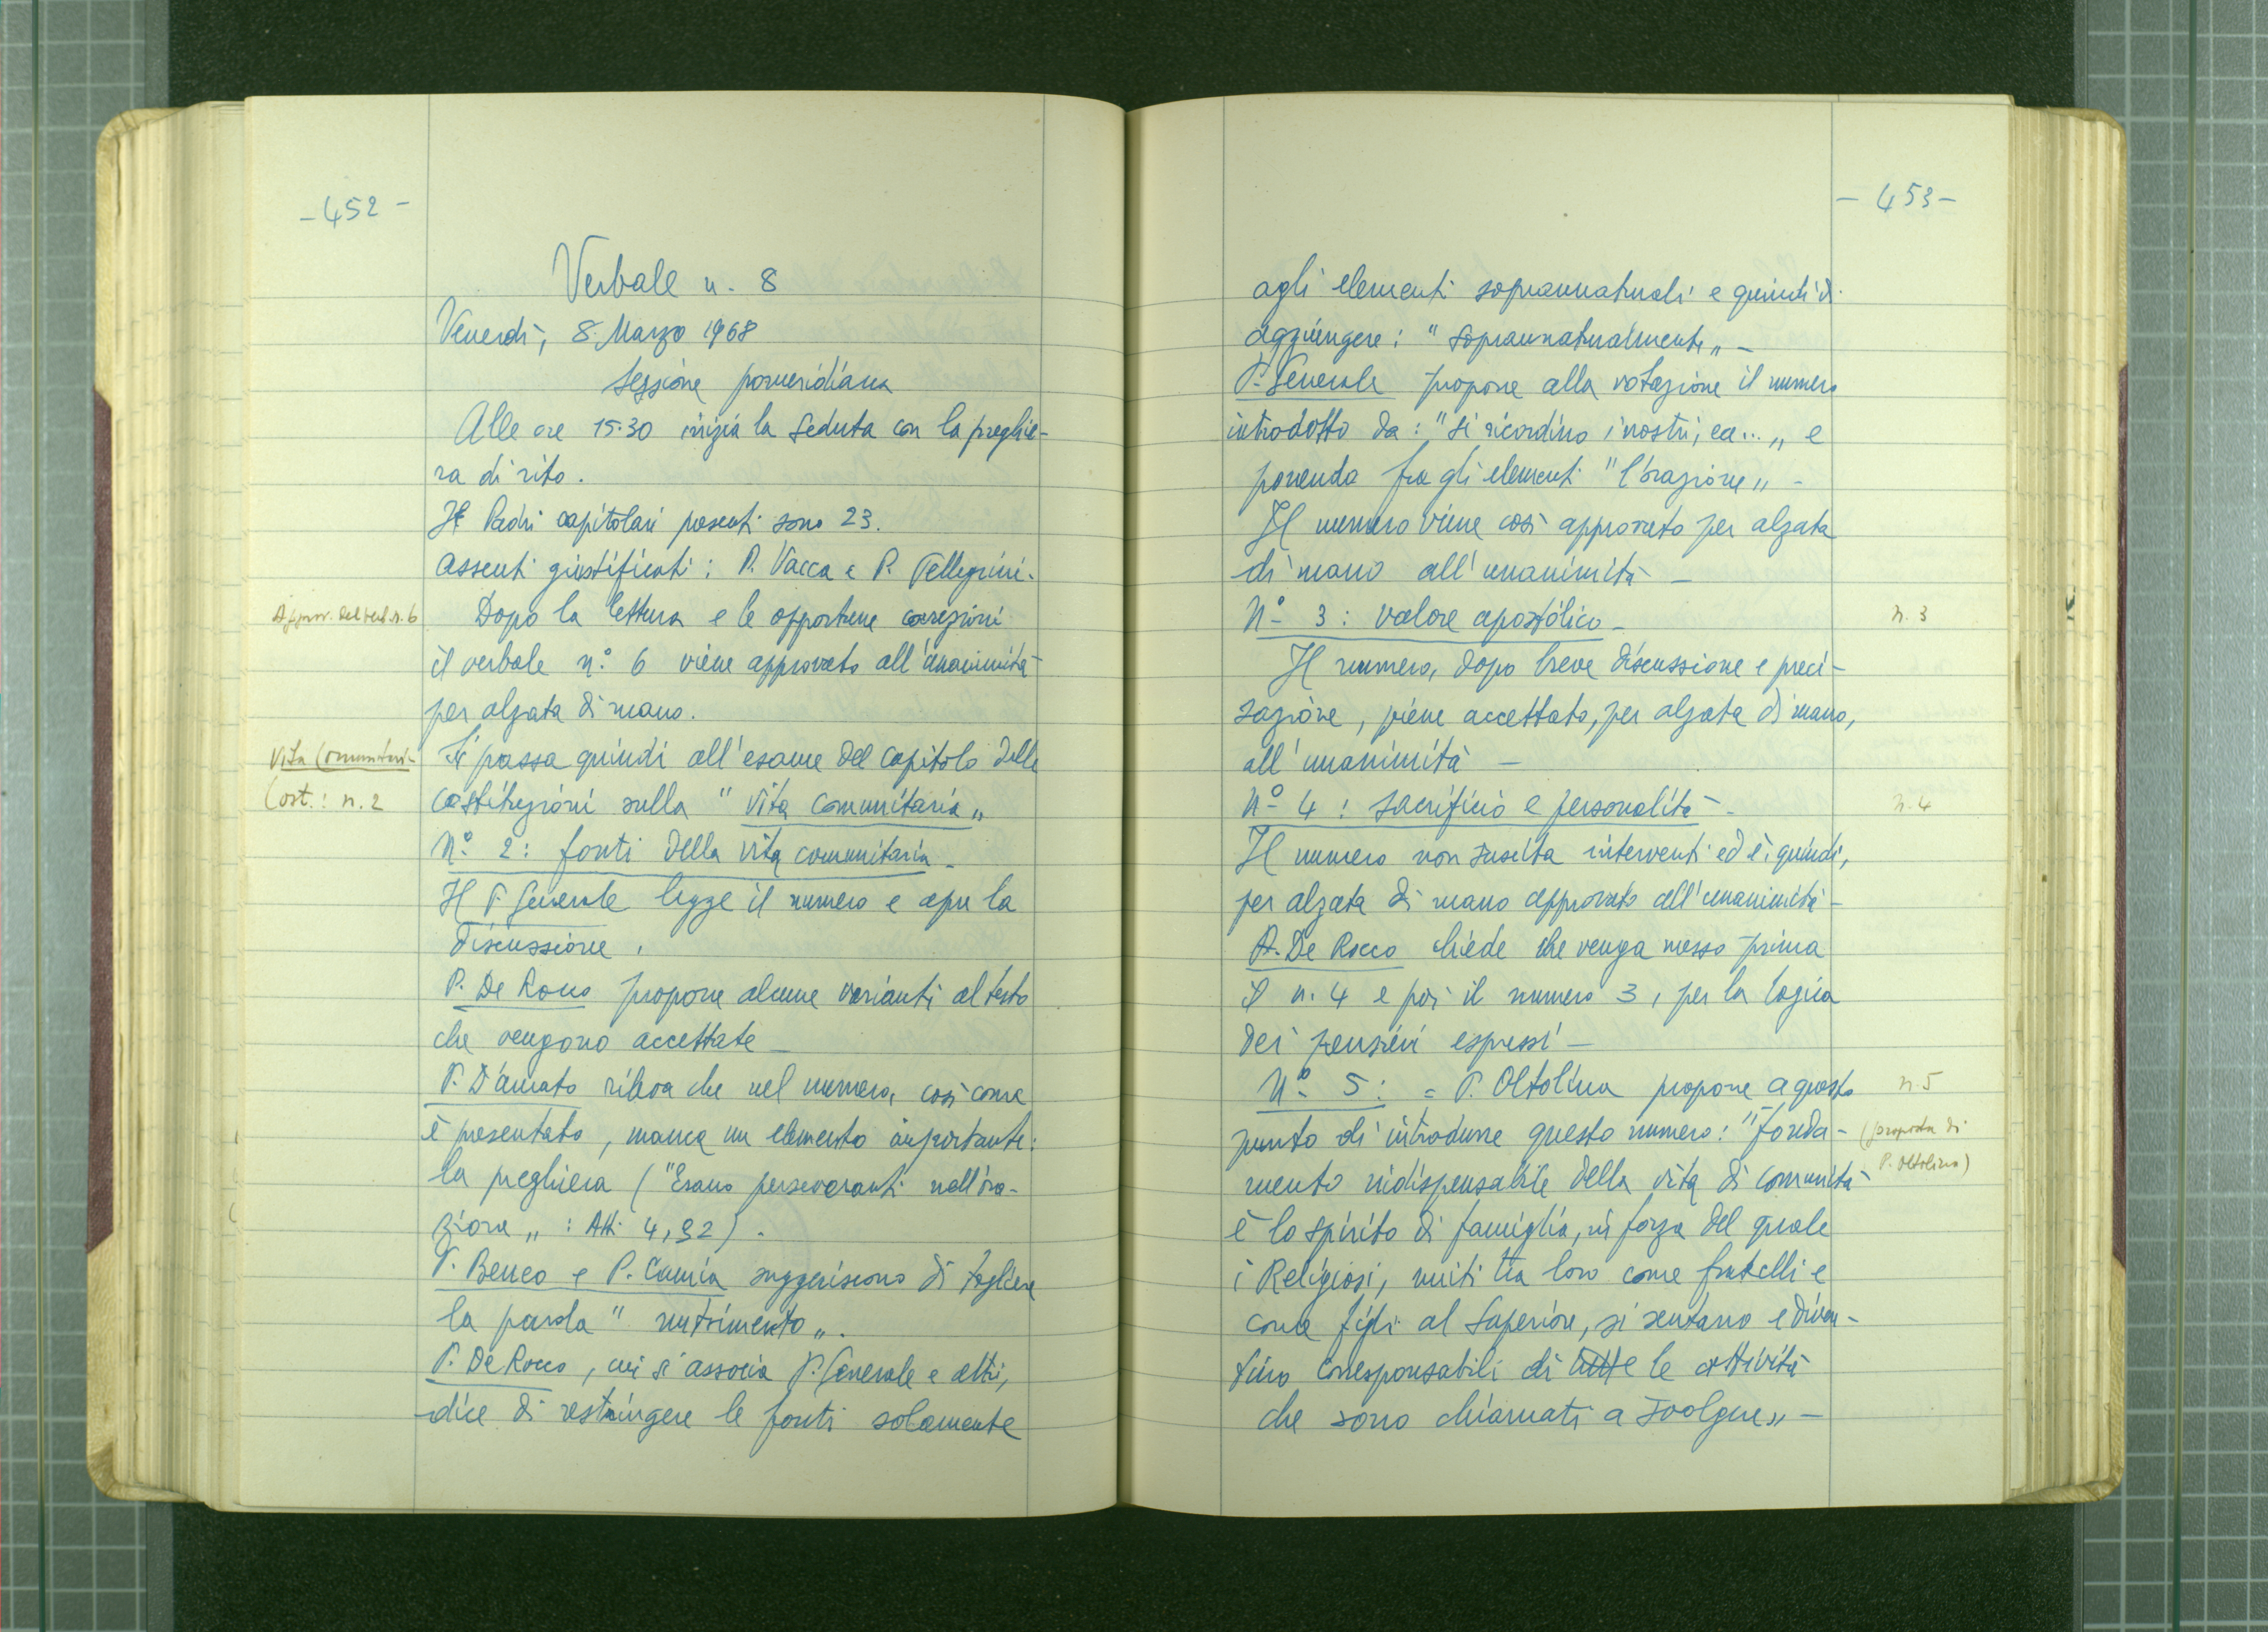 - 452 -
Verbale n. 8
Venerdì, 8 Marzo 1968
Sessione pomeridiana
Alle ore 15.30 inizia la seduta con la preghie-
ra di rito.
Padri capitolari presenti sono 23.
Assenti giustificati: P. Vacca e P. Pellegrini.
Approv. del verb. n. 6
Dopo la lettura e le opportune correzioni
il verbale n° 6 viene approvato all'unanimità
per alzata di mano.
Vita Comunitari-
Cost.: n. 2
Si passa quindi all'esame del capitolo delle
costituzioni sulla "vita comunitaria„
N° 2: fonti della vita comunitaria -
Il P. Generale legge il numero e apre la
discussione.
P. De Rocco propone alcune varianti al testo
che vengono accettate -
P. D'Amato rileva che nel numero, così come
è presentato, manca un elemento importante:
la preghiera ("Erano perseveranti nell'ora-
zione„: Atti 4,32).
P. Beneo e P. Camia suggeriscono di togliere
la parola "nutrimento„.
P. De Rocco, cui si associa P. Generale e altri,
dice di restringere le fonti solamente
- 453 -
agli elementi soprannaturali e quindi di
aggiungere: "soprannaturalmente„ -
P. Generale propone alla votazione il numero
introdotto da: "Si ricordino i nostri, ea...„ e
ponendo fra gli elementi "l'orazione„ -
Il numero viene così approvato per alzata
di mano all'unanimità -
N° 3: valore apostolico -
n. 3
Il numero, dopo breve discussione e preci-
sazione, viene accettato, per alzata di mano,
all'unanimità -
N° 4: sacrificio e personalità -
n. 4
Il numero non suscita interventi ed è, quindi,
per alzata di mano approvato all'unanimità -
P. De Rocco chiede che venga messo prima
il n. 4 e poi il numero 3, per la logica
dei pensieri espressi -
N° 5: = P. Oltolina propone a questo
n. 5
punto di introdurre questo numero: "fonda-
(proposta di
P. Oltolina)
mento indispensabile della vita di comunità
è lo spirito di famiglia, in forza del quale
i Religiosi, uniti tra loro come fratelli e
come figli al Superiore, si sentano e diven-
tino corresponsabili di tutte le attività
che sono chiamati a svolgere„ -